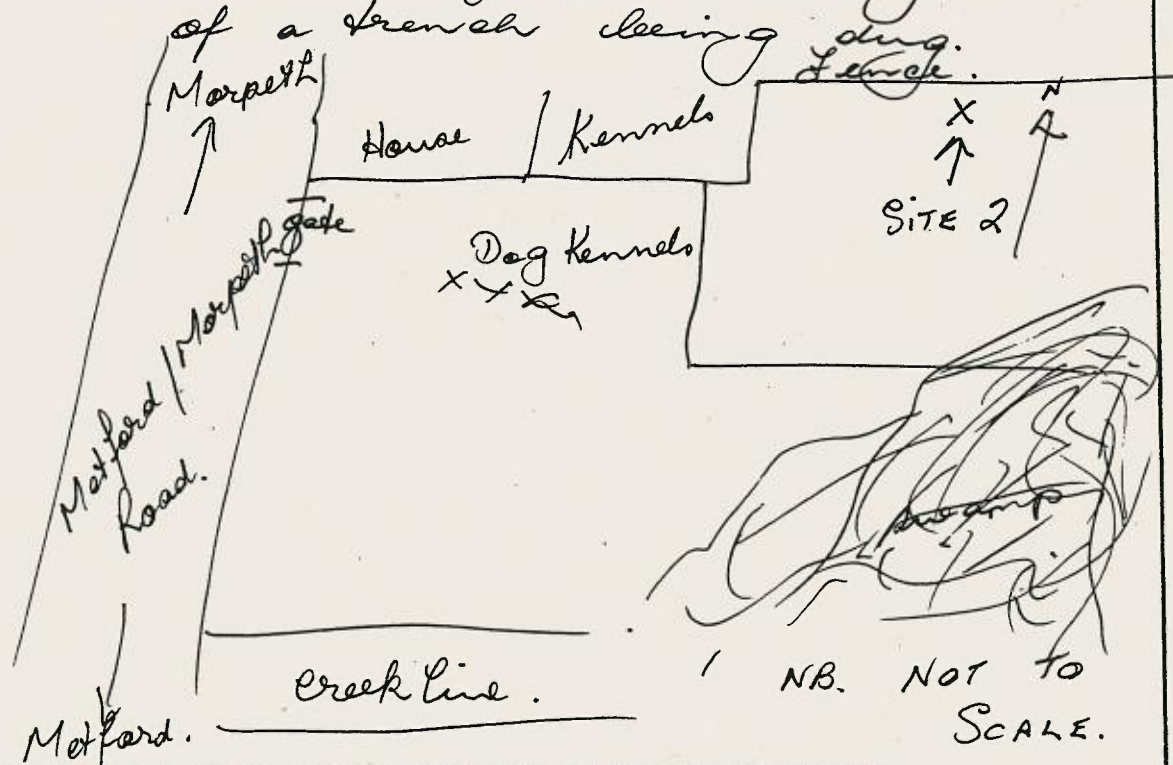 of a trench being dug.
Fence.
Morpeth
House / Kennels
X
N
SITE 2
gate
Dog Kennels
X X X
Metford / Morpeth
Road.
swamp
Creek Line.
NB. NOT TO
SCALE.
Metford.